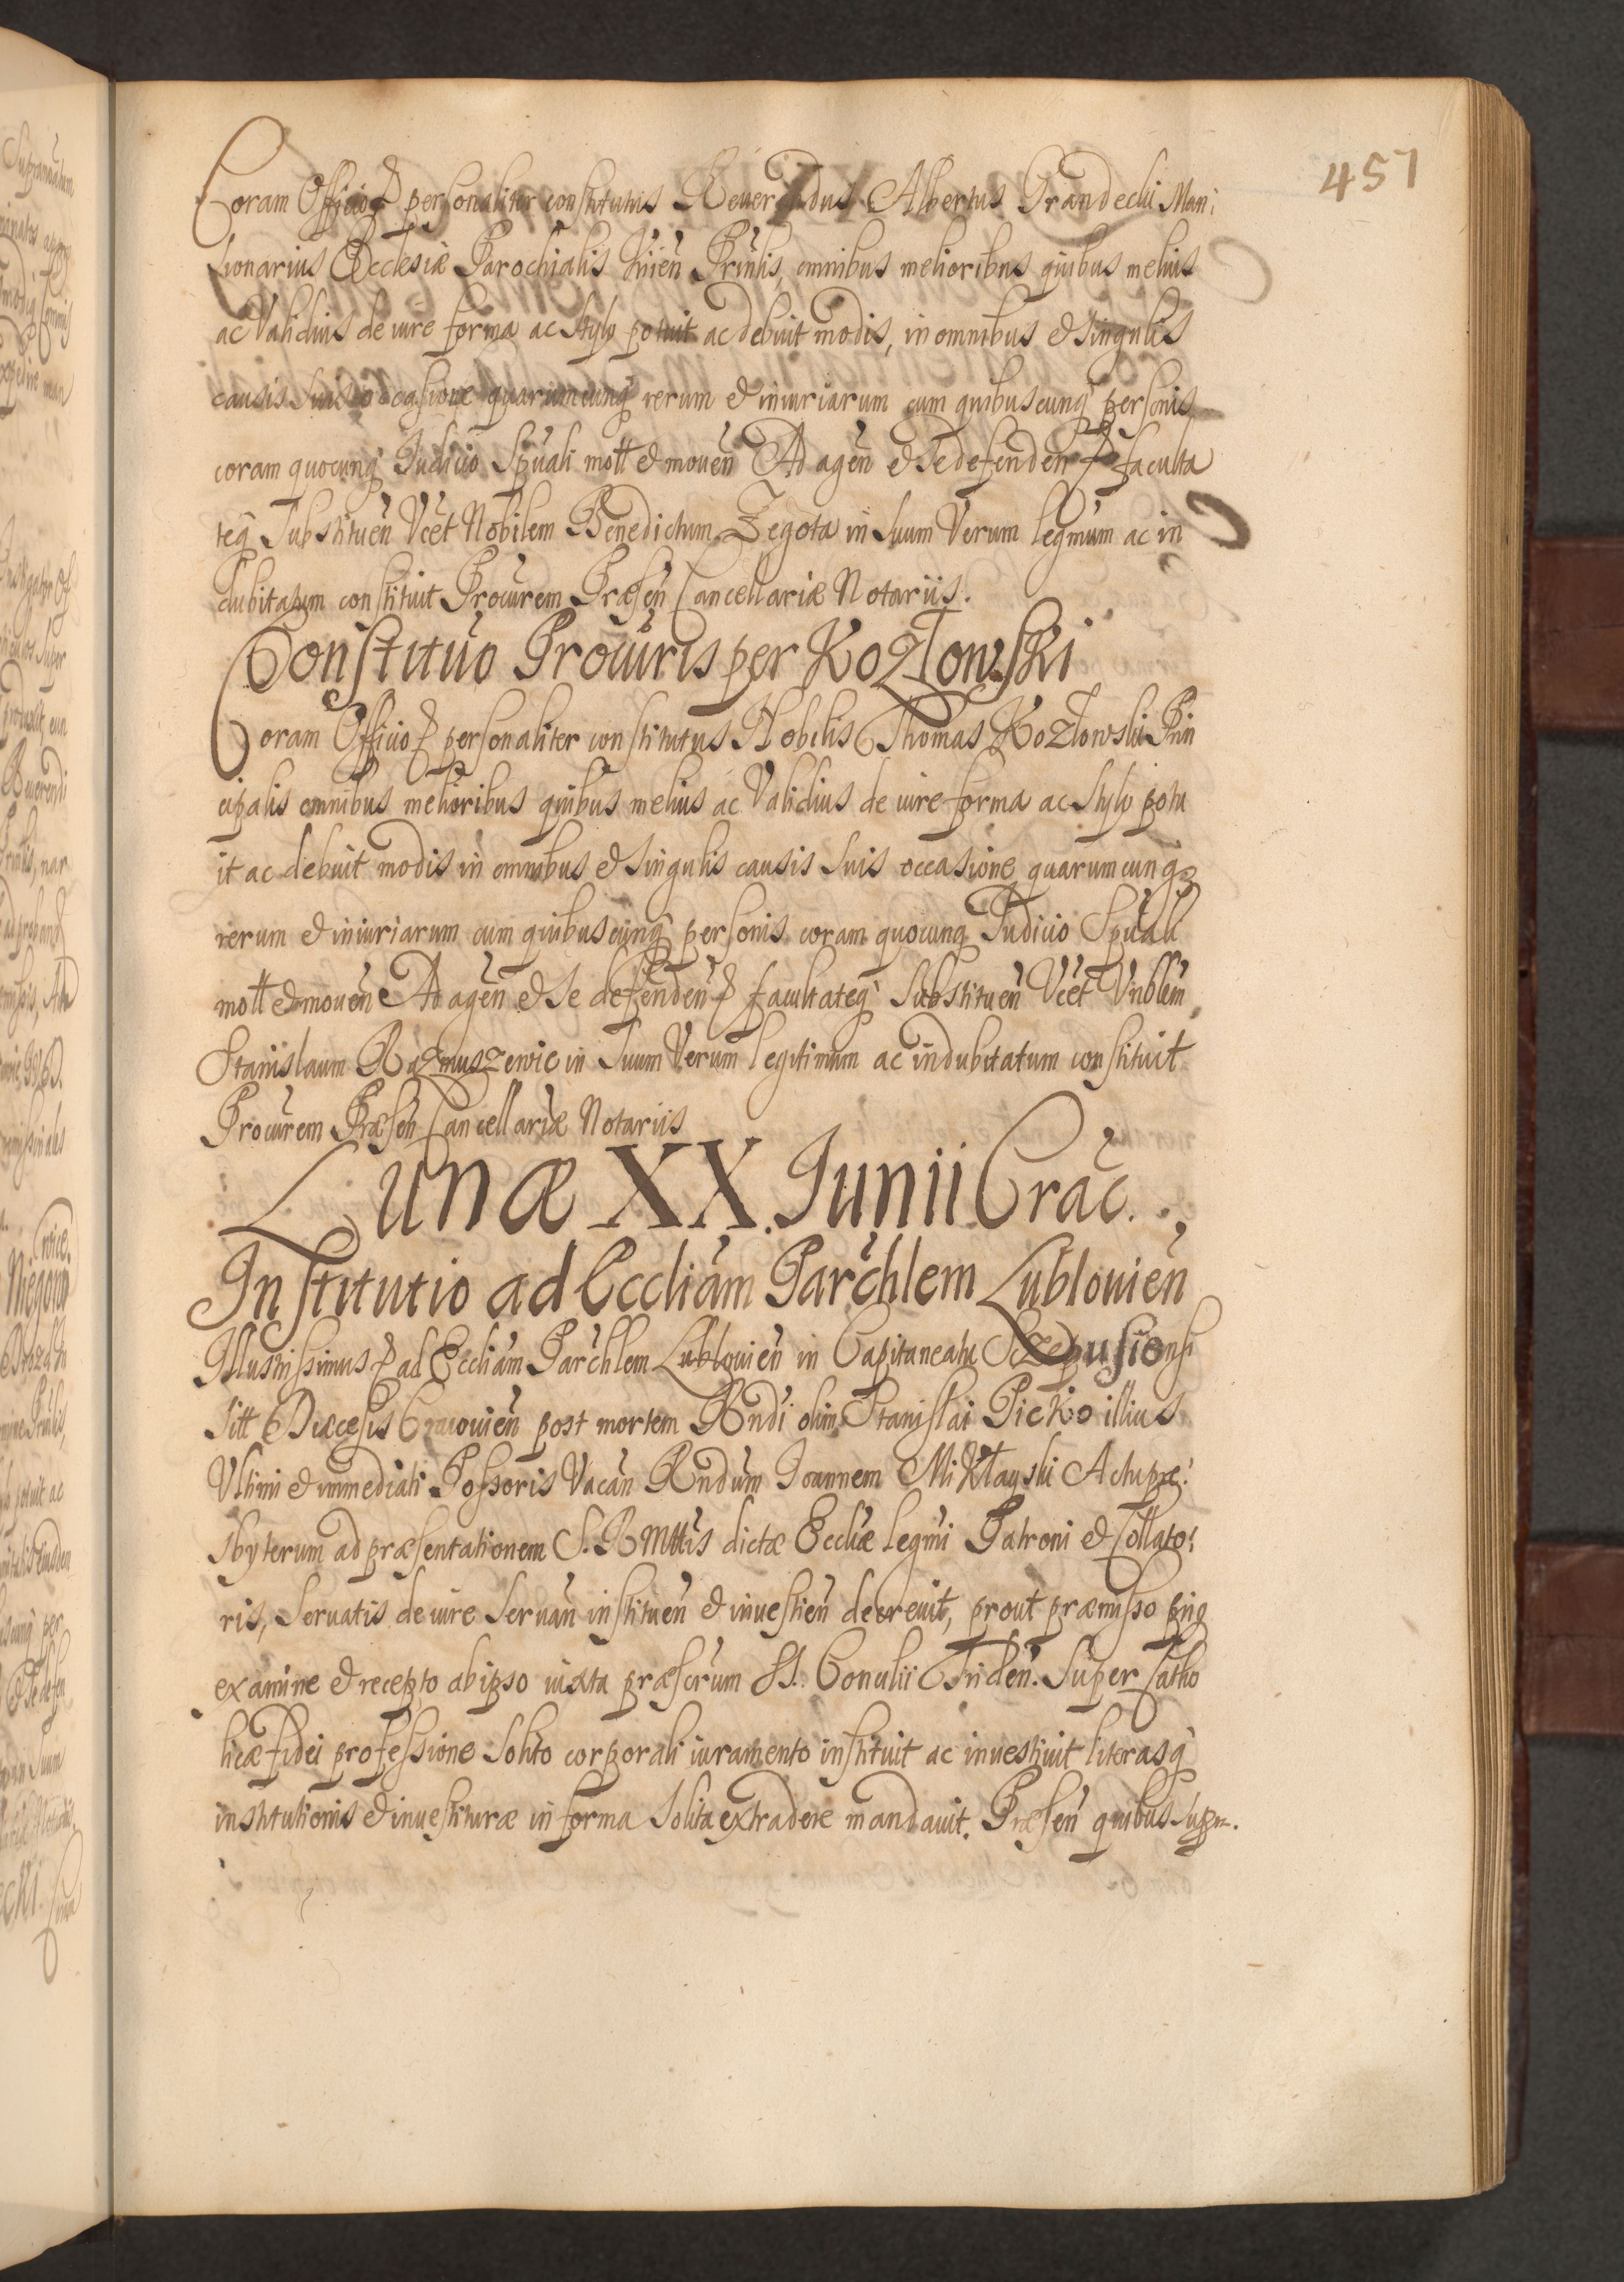 457
Coram Officio personaliter constitutus Reuerendus Albertus Grandecki Man:
sionarius Ecclesiæ Parochialis Prinlis, omnibus melioribus quibus melius
ac Validius de iure forma ac stylo potuit ac debuit modis, in omnibus et singulis
causis suis occasione quarumcunq rerum et iniuriarum cum quibuscunq personis
coram quocunq Judicio Spuali mott et mouen Ad agen et se defenden faculta
teq Substituen Vcet Nobilem Benedictum Zegota in suum Verum legmum ac in
dubitatum constituit Procurem Præsen Cancellariæ Notariis.
Constitutio Procuris per Kozłowski
Coram Officio personaliter constitutus Nobilis Thomas Kozłowski Prin
cipalis omnibus melioribus quibus melius ac Validius de iure forma ac stylo potu
it ac debuit modis in omnibus et singulis causis suis occasione quarumcunq
rerum et iniuriarum cum quibuscunq personis coram quocunq Judicio Spuali
mott et mouen Ad agen et se defenden facultateq Substituen Vcet Vnblem
Stanislaum Rozmuszewic in suum Verum legitimum ac indubitatum constituit
Procurem Præsen Cancellariæ Notariis
Lunæ XX Junii Crac.
Institutio ad Eccliam Parchlem Lublouien
Illustrissimus ad Eccliam Parchlem Lublouien in Capitaneatu Sczepusiensi
sitt Diæcesis Cracouien post mortem Rndi olim Stanislai Picko illius
Vltimi et immediati Possoris Vacan Rndum Joannem Mikłayski Actu pre:
sbyterum ad præsentationem S. R Mttis dictæ Eccliæ legmi Patroni et Collato:
ris, seruatis de iure seruan instituen et inuestien decreuit, prout præmisso
examine et recepto ab ipso iuxta præscrum SS. Concilii Triden. super Catho
licæ fidei professione solito corporali iuramento instituit ac inuestiuit literasq
institutionis et inuestituræ in forma solita extradere mandauit. Præsen quibus supr.